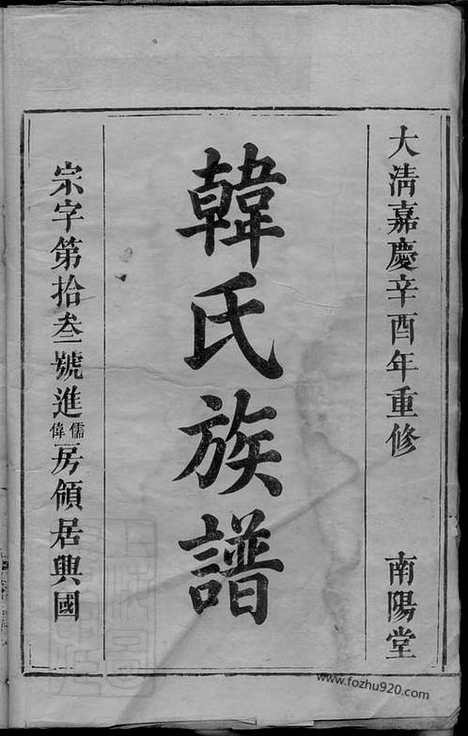 大清嘉慶辛酉年重修　南陽堂
韓氏族譜
宗字第拾叁號進儒偉房領居興國
www.fozhu920.com